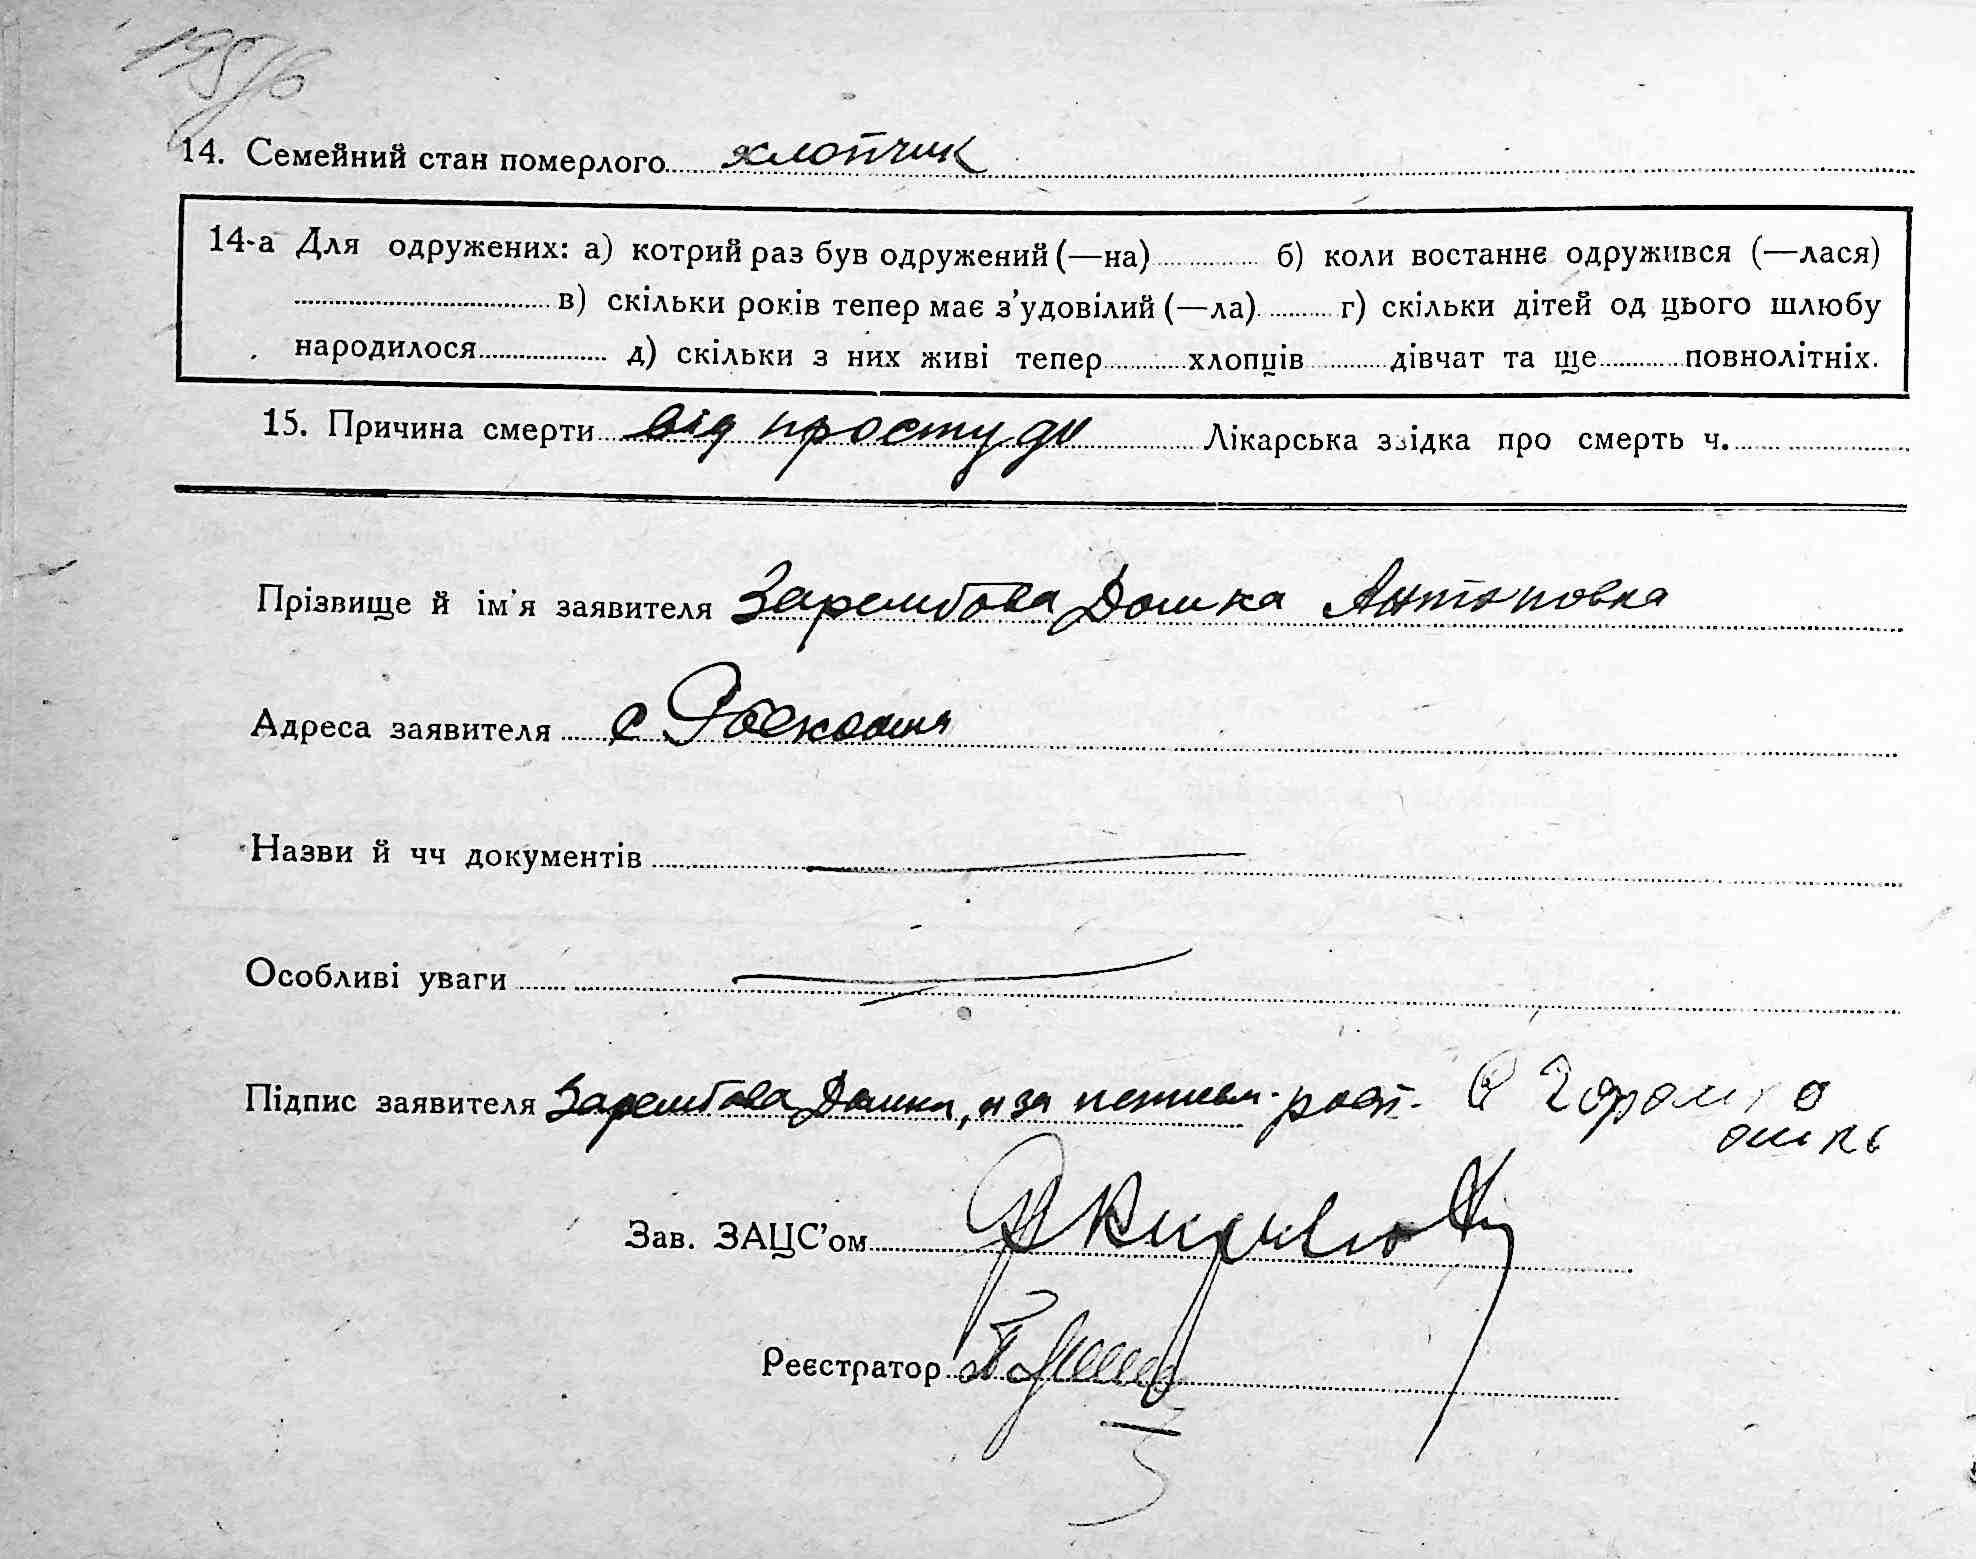 195/6
14. Семейний стан померлого хлопчик
14-а Для одружених: а) котрий раз був одружений (—на) б) коли востаннє одружився (—лася)
в) скільки років тепер має з'удовілий (—ла) г) скільки дітей од цього шлюбу
народилося д) скільки з них живі тепер хлопців дівчат та ще повнолітніх.
15. Причина смерти від простуди Лікарська звідка про смерть ч.
Прізвище й ім'я заявителя Зарембова Домка Антоновна
Адреса заявителя с
Назви й чч документів
Особливі уваги
Підпис заявителя Зарембова Домка, а за
Зав. ЗАЦС'ом
Реєстратор